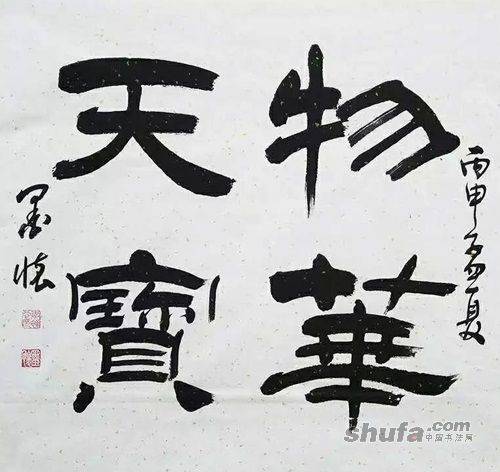 丙申孟夏
物華
天寶
shufa.com
中国书法网